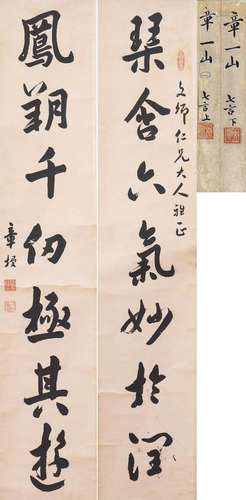 琹含六氣妙於潤
文師仁兄大人雅正
鳳翔千仞極其遊
章梫
章一山 七言下
章一山 七言上